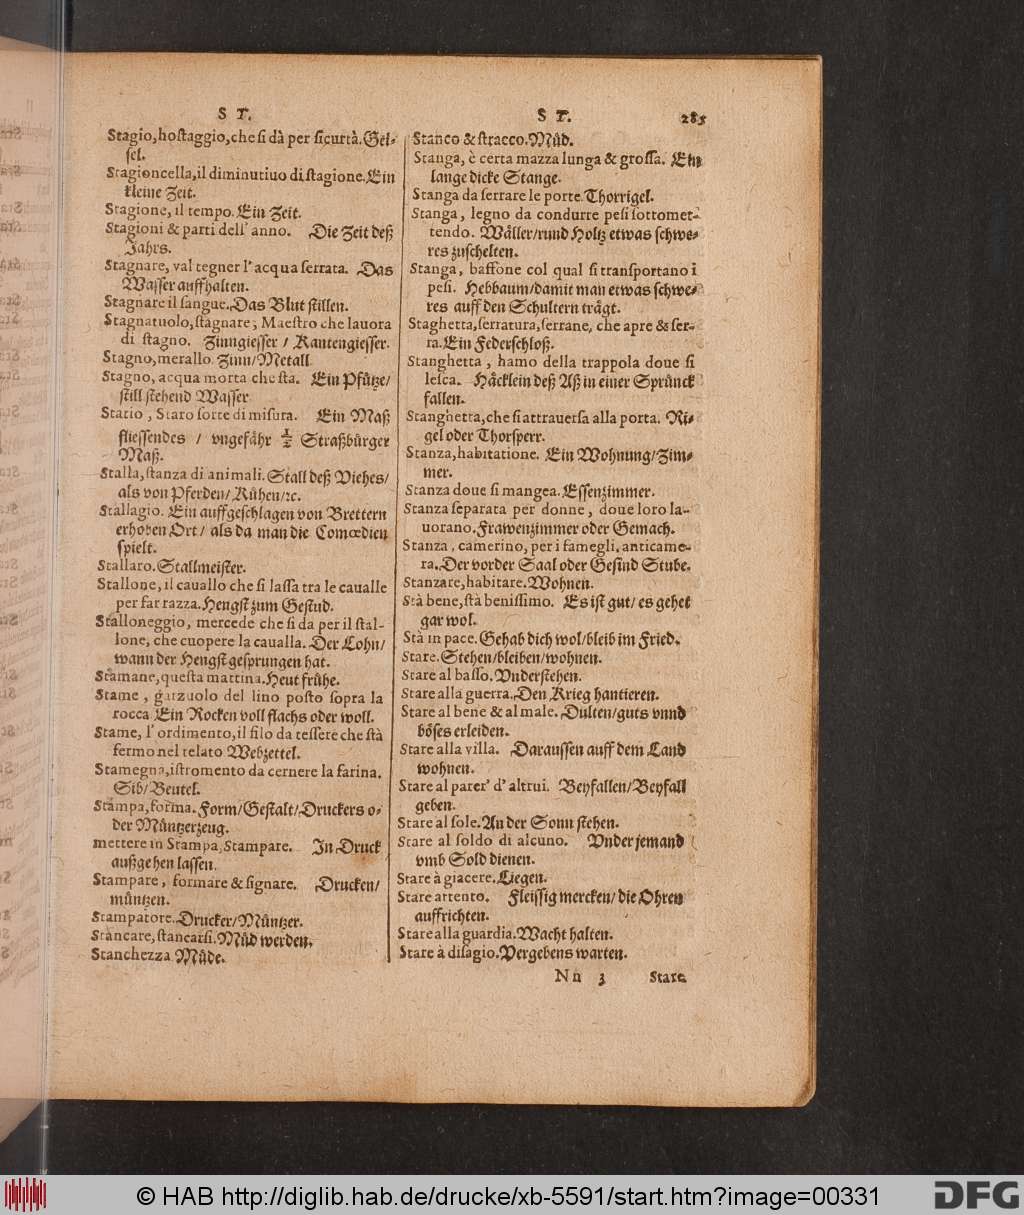 S T.
Stagio, hostaggio, che si dà per sicurtà. Gei-
sel.
Stagioncella, il diminutiuo di stagione. Ein
kleine Zeit.
Stagione, il tempo. Ein Zeit.
Stagioni & parti dell' anno. Die Zeit deß
Jahrs.
Stagnare, val tegner l' acqua serrata. Das
Wasser auffhalten.
Stagnare il sangue. Das Blut stillen.
Stagnatuolo, stagnare, Maestro che lauora
di stagno. Zinngiesser / Kantengiesser.
Stagno, metallo. Zinn/Metall
Stagno, acqua morta che sta. Ein Pfütze/
still stehend Wasser
Stato, Staro sorte di misura. Ein Maß
fliessendes / vngefähr ½ Straßbürger
Maß.
Stalla, stanza di animali. Stall deß Viehes/
als von Pferden/ Kühen/ꝛc.
Stallagio. Ein auffgeschlagen von Brettern
erhoben Ort/ als da man die Comœdien
spielt.
Stallaro. Stallmeister.
Stallone, il cauallo che si lassa tra le caualle
per far razza. Hengst zum Gestud.
Stalloneggio, mercede che si da per il stal-
lone, che cuopere la caualla. Der Lohn/
wann der Hengst gesprungen hat.
Stamane, questa mattina. Heut frühe.
Stame, garzuolo del lino posto sopra la
rocca Ein Rocken voll flachs oder woll.
Stame, l' ordimento, il filo da tessere che stà
fermo nel telato Webzettel.
Stamegna, istromento da cernere la farina.
Sib/Beutel.
Stampa, forma. Form/Gestalt/Druckers o-
der Müntzerzeug.
mettere in Stampa, Stampare. In Druck
außgehen lassen.
Stampare, formare & signare. Drucken/
müntzen.
Stampatore. Drucker/Müntzer.
Stancare, stancarsi. Müd werden.
Stanchezza Müde.
S T. 285
Stanco & stracco. Müd.
Stanga, è certa mazza lunga & grossa. Ein
lange dicke Stange.
Stanga da serrare le porte. Thorrigel.
Stanga, legno da condurre pesi sottomet-
tendo. Wäller/rund Holtz etwas schwe-
res zuschelten.
Stanga, bastone col qual si transportano i
pesi. Hebbaum/damit man etwas schwe-
res auff den Schultern trägt.
Staghetta, serratura, serrane, che apre & ser-
ra. Ein Federschloß.
Stanghetta, hamo della trappola doue si
lesca. Häcklein deß Aß in einer Sprünck
fallen.
Stanghetta, che si attrauersa alla porta. Ri-
gel oder Thorsperr.
Stanza, habitatione. Ein Wohnung/Zim-
mer.
Stanza doue si mangea. Essenzimmer.
Stanza separata per donne, doue loro la-
uorano. Frawenzimmer oder Gemach.
Stanza, camerino, per i famegli. anticame-
ra. Der vorder Saal oder Gesind Stube.
Stanzare, habitare. Wohnen.
Stà bene, stà benissimo. Es ist gut/ es gehet
gar wol.
Stà in pace. Gehab dich wol/bleib im Fried.
Stare. Stehen/bleiben/wohnen.
Stare al basso. Vnderstehen.
Stare alla guerra. Den Krieg hantieren.
Stare al bene & al male. Dulten/guts vnnd
böses erleiden.
Stare alla villa. Daraussen auff dem Land
wohnen.
Stare al parer' d' altrui. Beyfallen/Beyfall
geben.
Stare al sole. An der Sonn stehen.
Stare al soldo di alcuno. Vnder jemand
vmb Sold dienen.
Stare à giacere. Liegen.
Stare attento. Fleissig mercken/ die Ohren
auffrichten.
Stare alla guardia. Wacht halten.
Stare à disagio. Vergebens warten.
Nn 3 Stare
© HAB http://diglib.hab.de/drucke/xb-5591/start.htm?image=00331
DFG